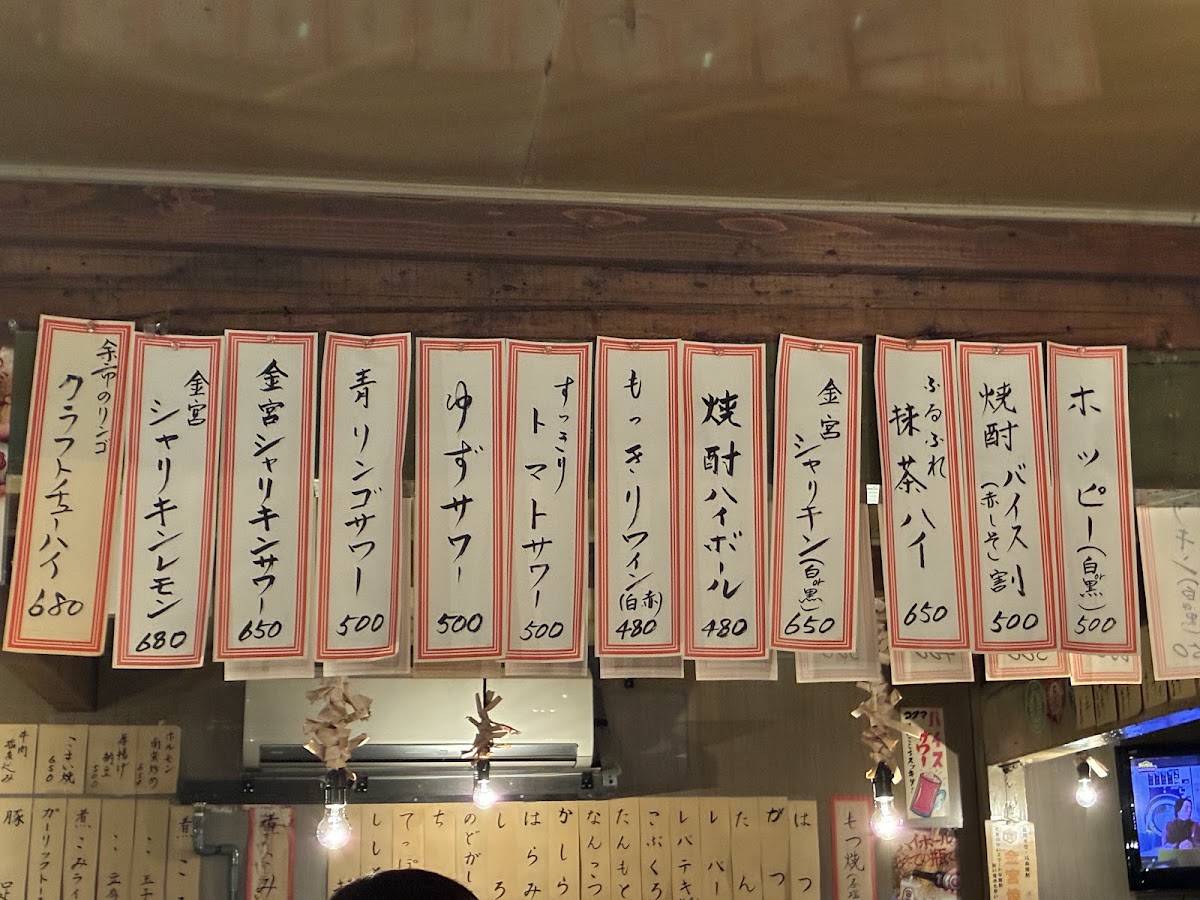 ホッピー(白or黒)
500
焼酎バイス割
(赤しそ)
500
ふるふれ
抹茶ハイ
650
金宮
シャリキン(白or黒)
650
焼酎ハイボール
480
もっきりワイン(赤白)
480
すっきり
トマトサワー
500
ゆずサワー
500
青リンゴサワー
500
金宮シャリキンサワー
650
金宮
シャリキンレモン
680
余市のリンゴ
クラフトチューハイ
680
ホルモン
厚揚げ
500
650
牛肉
はつ
がつ
たん
レバー
レバテキ
こぶくろ
たんもと
なんこつ
かしら
はらみ
しろ
のどがし
もつ焼
バイス
サワー
ハイボール
金宮
ガーリックトー
豚